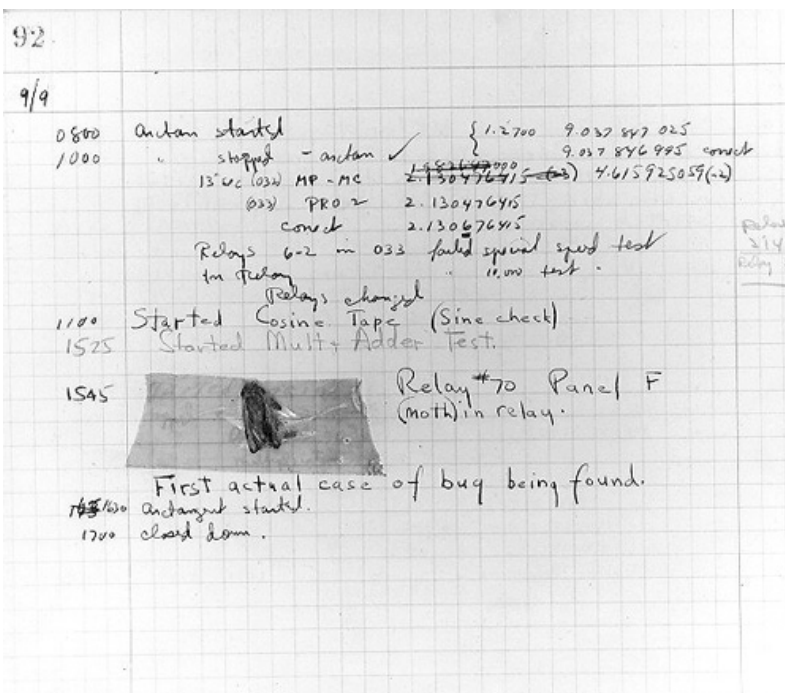 92
9/9
0800 Antan started
1000 " stopped - antan ✓ { 1.2700 9.037 847 025
9.037 846 995 correct
13"uc (032) MP - MC 2.130476415 (-3) 4.615925059(-2)
(033) PRO 2 2.130476415
correct 2.130676415
Relays 6-2 in 033 failed special speed test
in Relay " 10.000 test .
Relays changed
1100 Started Cosine Tape (Sine check)
1525 Started Mult+ Adder Test.
1545 Relay #70 Panel F
(moth) in relay.
First actual case of bug being found.
1630 antangent started.
1700 closed down.